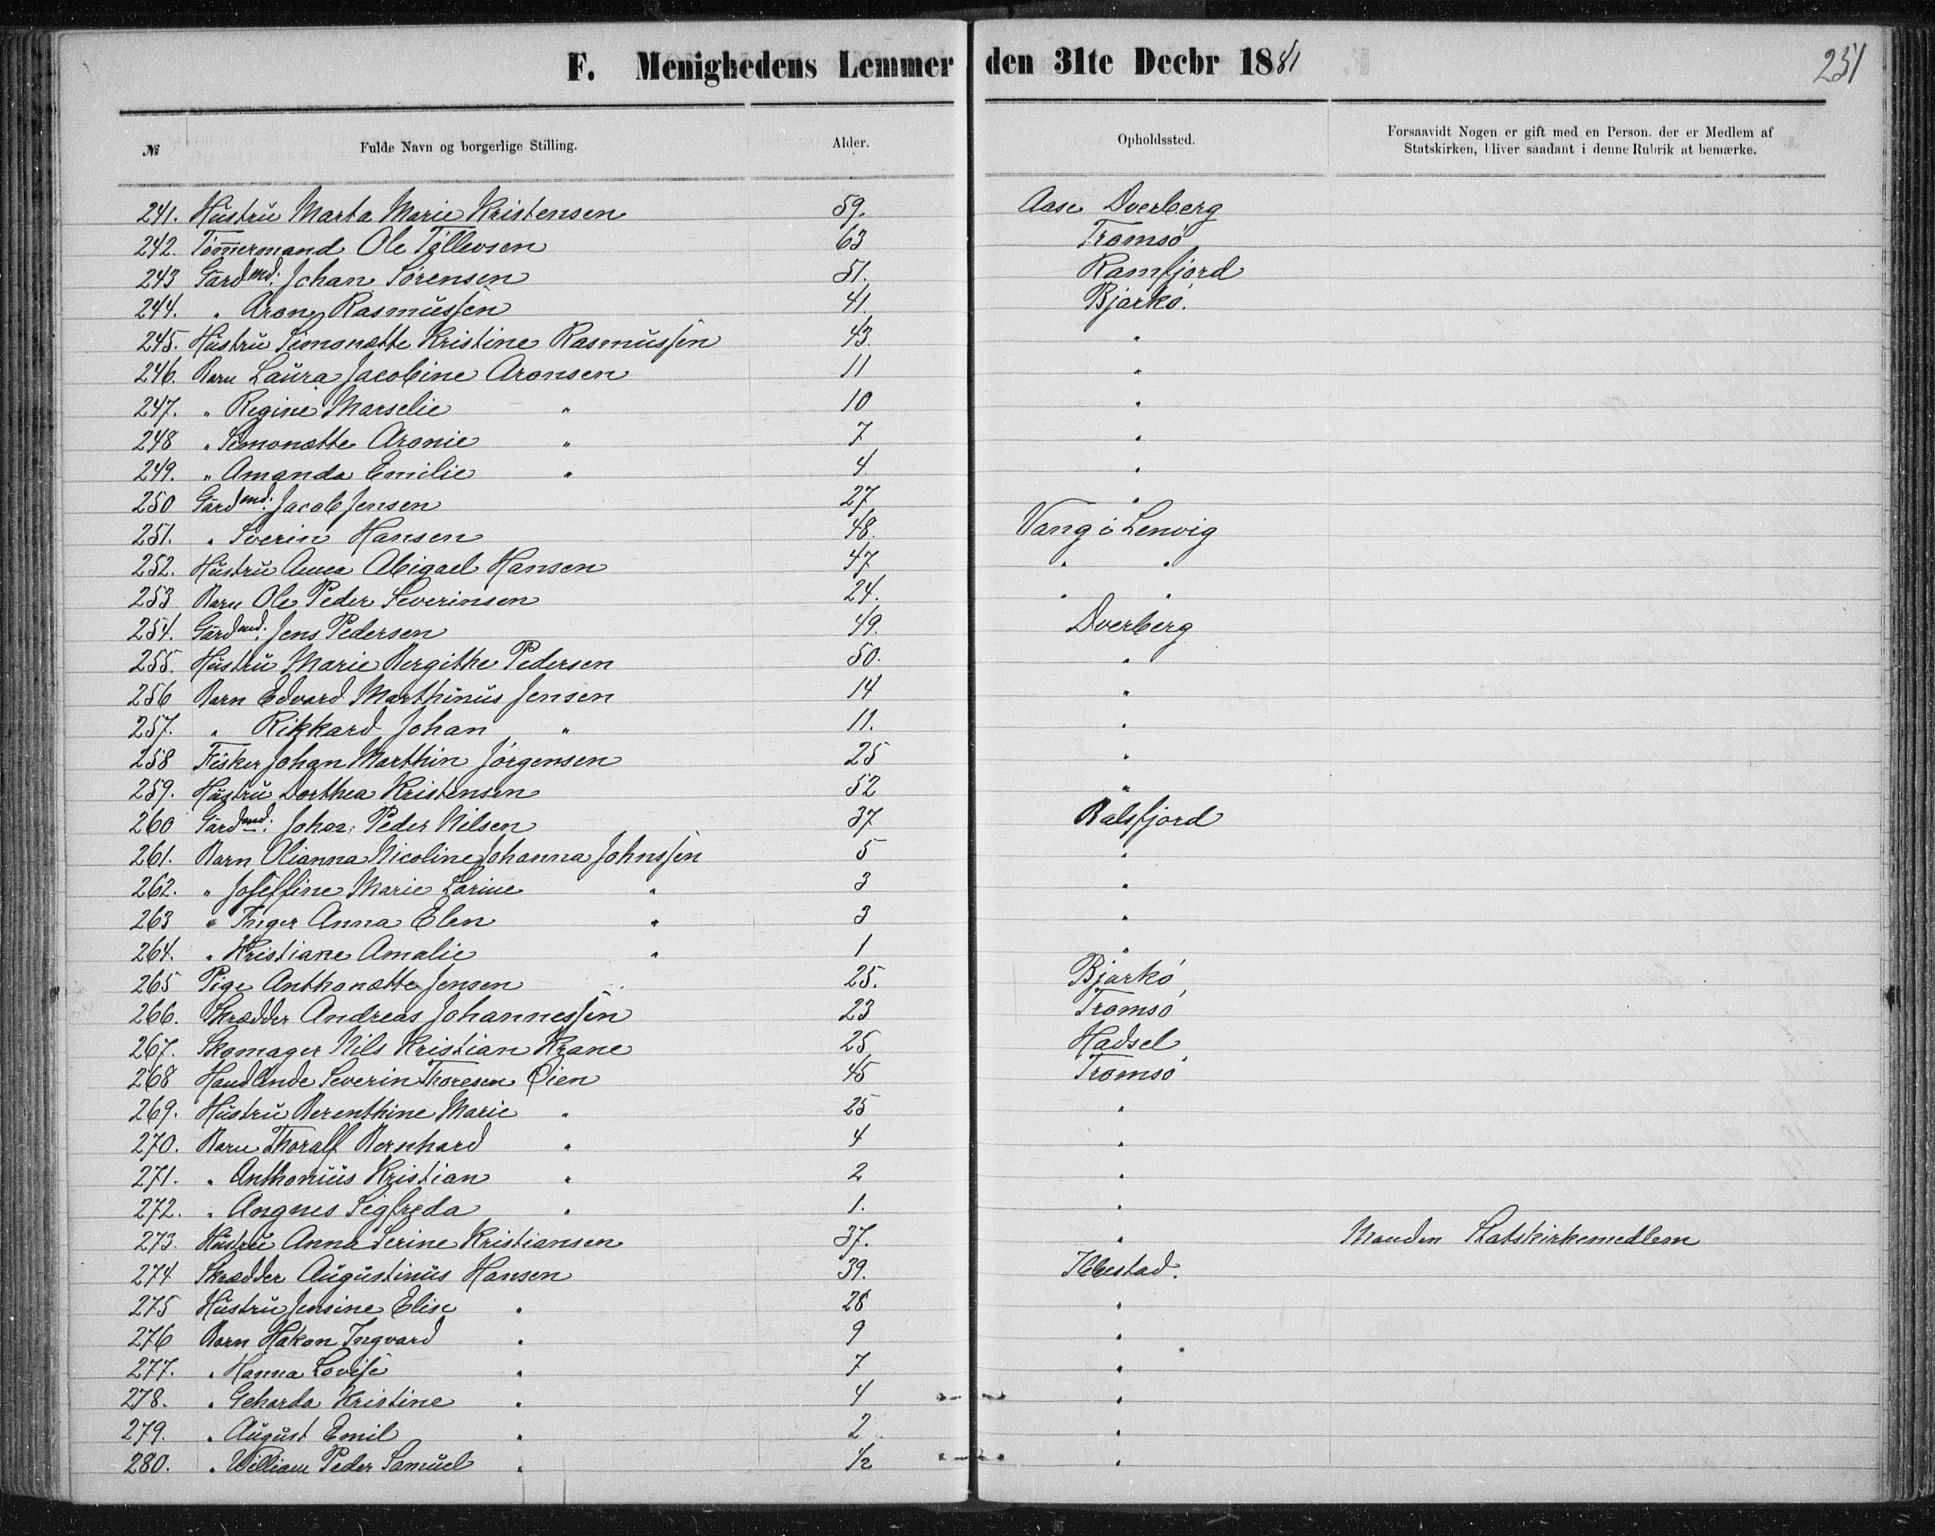 F. Menighedens Lemmer den 31te Decbr 1881 251
№ Fulde Navn og borgerlige Stilling. Alder. Opholdssted. Forsaavidt Nogen er gift med en Person, der er Medlem af Statskirken, bliver saadant i denne Rubrik at bemærke.
241. Hustru Marta Marie Kristensen 59. Aase Dverberg
242. Tømmermand Ole Tøllevsen 63 Tromsø
243 Gårdmd: Johan Sørensen 51. Ramfjord
244. " Aron Rasmussen 41. Bjarkø.
245. Hustru Simonette Kristine Rasmussen 43. "
246. Barn Laura Jacobine Aronsen 11 "
247. " Regine Marselie " 10 "
248 " Simonætte Aronie " 7 "
249. " Amanda Emilie " 4. "
250 Gårdmd: Jacob Jensen 27. "
251. " Sverin Hansen 48. Vang i Lenvig
252. Hustru Anna Abigael Hansen 47 " "
253 Barn Ole Peder Severinsen 24. " "
254. Gårdmd: Jens Pedersen 49. Dverberg
255. Hustru Marie Bergithe Pedersen 50. "
256 Barn Edvard Marthinus Jensen 14 "
257. " Rikkard Johan " 11. "
258 Fisker Johan Marthin Jørgensen 25 "
259. Hustru Dorthea Kristensen 52 "
260 Gårdmd: Johan Peder Nilsen 37 Balsfjord
261. Barn Olianna Nicoline Johanna Johnssen 5 "
262. " Joseffine Marie Larine " 3 "
263 " Inger Anna Elen " 3 "
264. " Kristiane Amalie " 1 "
265 Pige Anthonætte Jensen 25. Bjarkø
266. Skrædder Andreas Johannessen 23 Tromsø
267. Skomager Nils Kristian Krane 25 Hadsel
268 Handlende Severin Thoresen Øien 45 Tromsø
269. Hustru Berenthine Marie " 25 "
270. Barn Thoralf Bernhard " 4 "
271. " Anthonius Kristian " 2 "
272. " Angnes Sigfreda " 1. "
273. Hustru Anna Serine Kristiansen 37. " Manden Statskirkemedlem
274 Skrædder Augustinus Hansen 39. Ibbestad.
275 Hustru Jensine Elise " 28 "
276 Barn Hakon Ingvard " 9 "
277. " Hanna Lovise " 7 "
278. " Geharda Kristine " 4 "
279. " August Emil " 2 "
280. " William Peder Samuel " 1/2 "